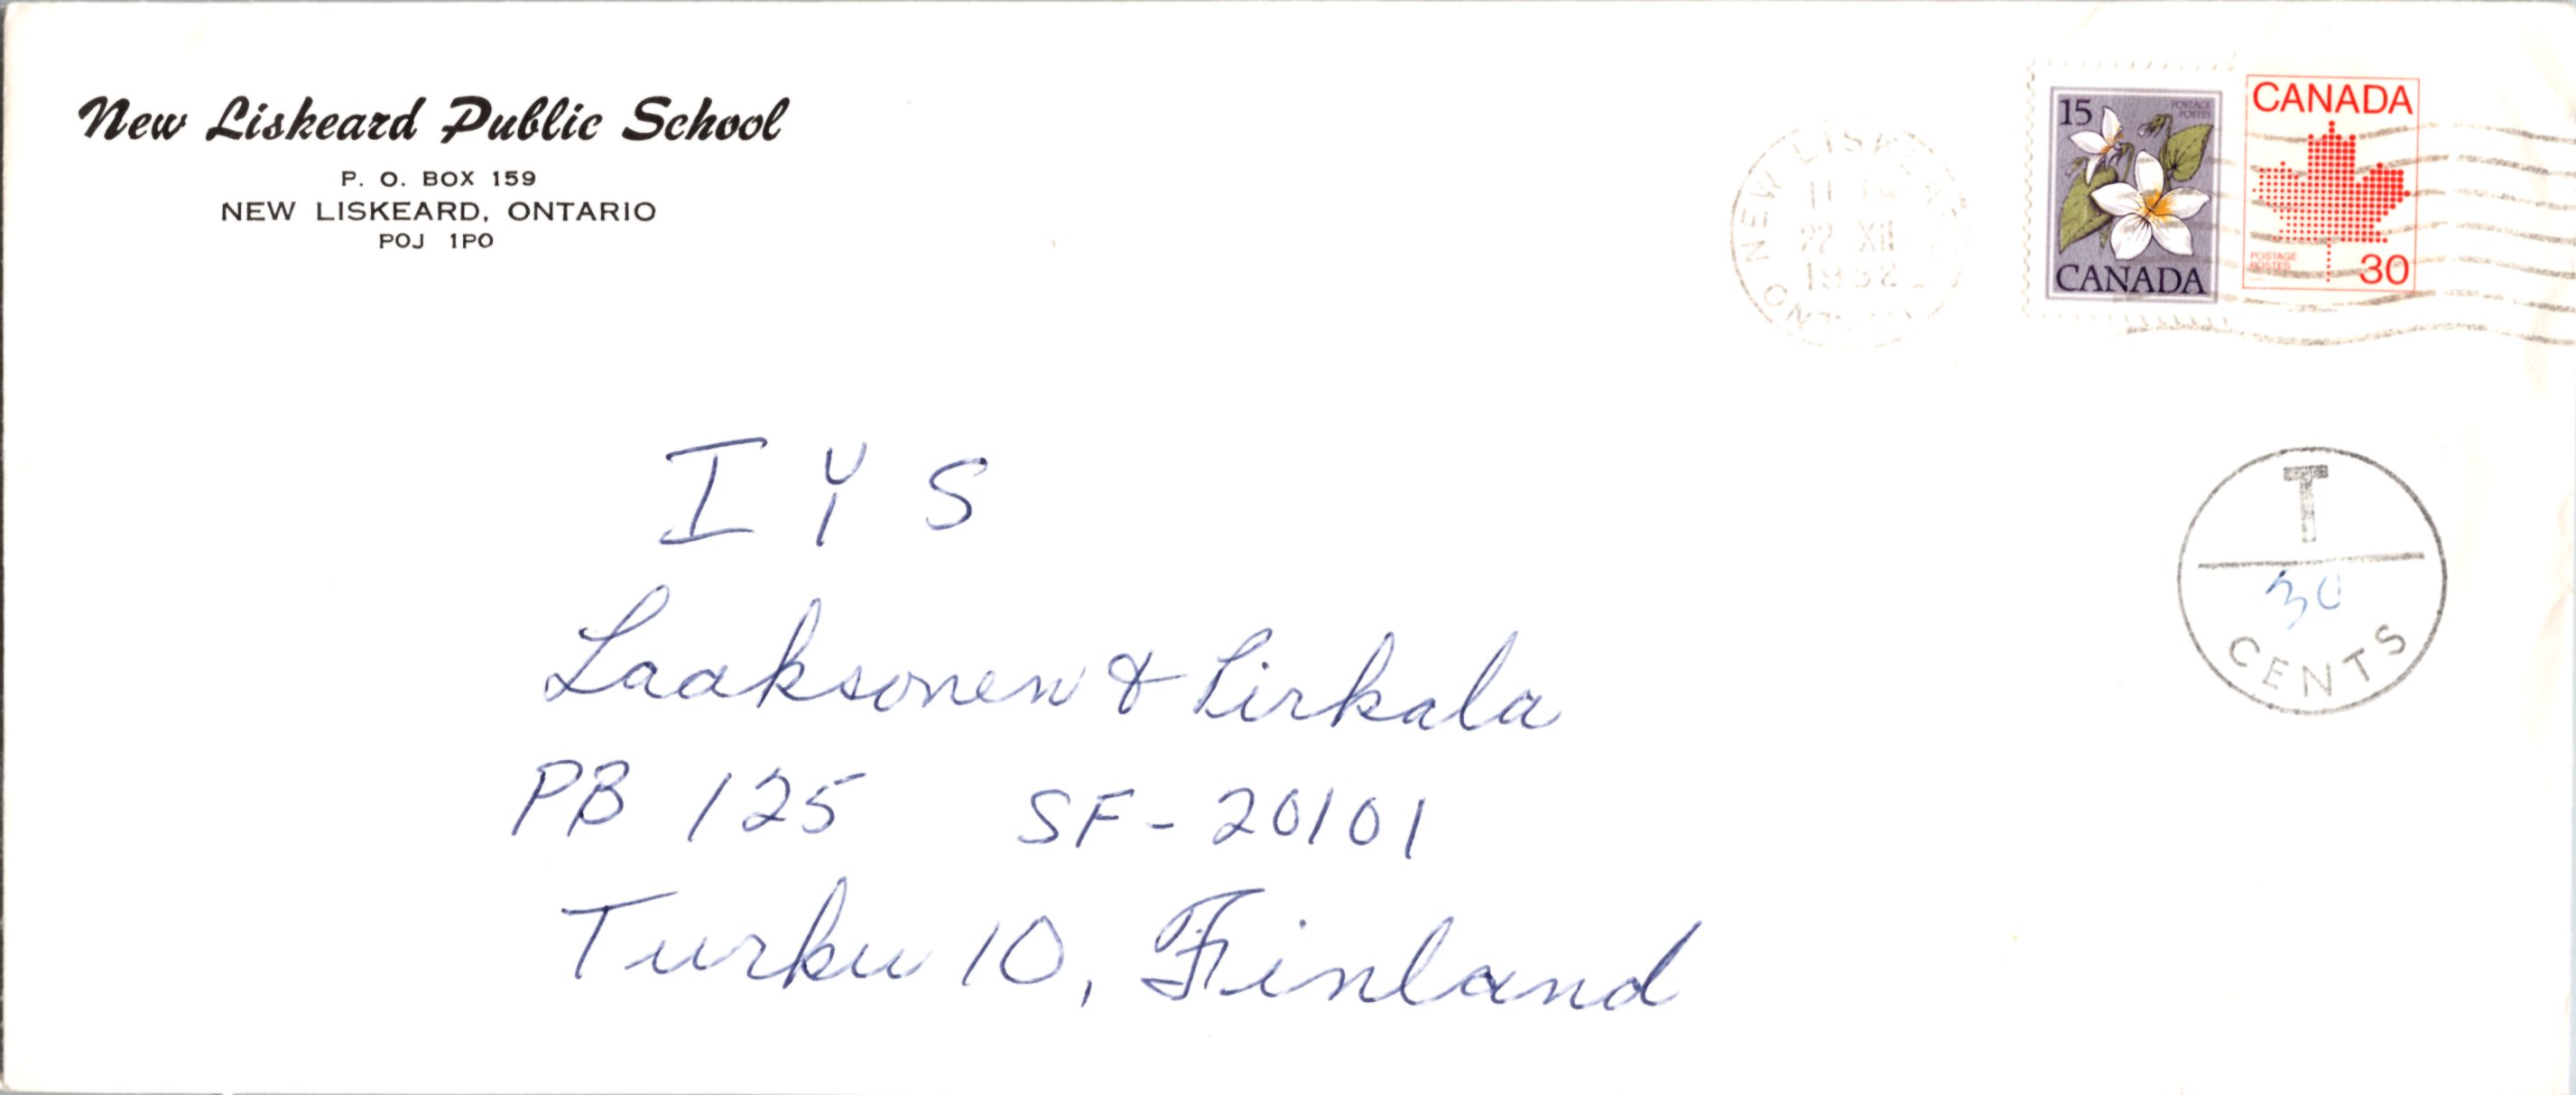 New Liskeard Public School
P. O. BOX 159
NEW LISKEARD, ONTARIO
POJ 1PO
NEW LISKEARD
11
22 XII
1982
ONTARIO
15
POSTAGE
POSTES
CANADA
CANADA
POSTAGE
POSTES
30
T
30
CENTS
I Y S
Laaksonen & Pirkala
PB 125 SF-20101
Turku 10, Finland